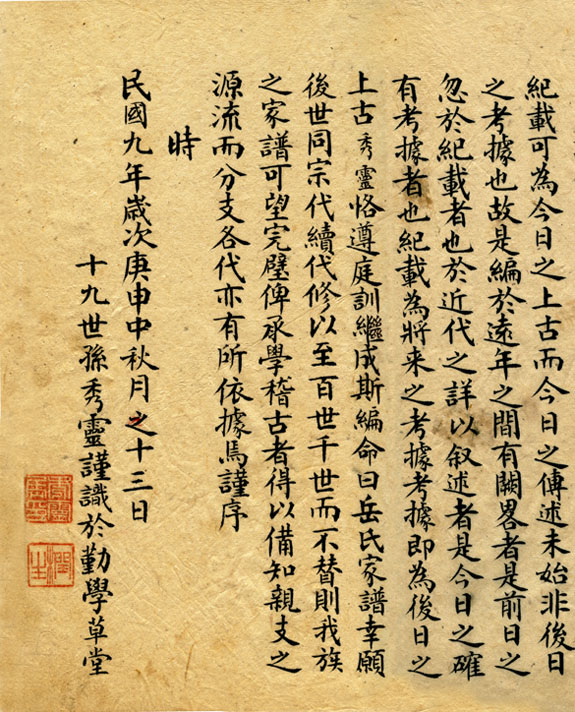 紀載可為今日之上古而今日之傳述未始非後日
之考據也故是編於遠年之間有闕畧者是前日之
忽於紀載者也於近代之詳以叙述者是今日之確
有考據者也紀載為將来之考據考據即為後日之
上古秀靈恪遵庭訓繼成斯編命曰岳氏家譜幸願
後世同宗代續代修以至百世千世而不替則我族
之家譜可望完璧俾承學稽古者得以備知親支之
源流而分支各代亦有所依據焉謹序
時
民國九年歲次庚申中秋月之十三日
十九世孫秀靈謹識於勤學草堂